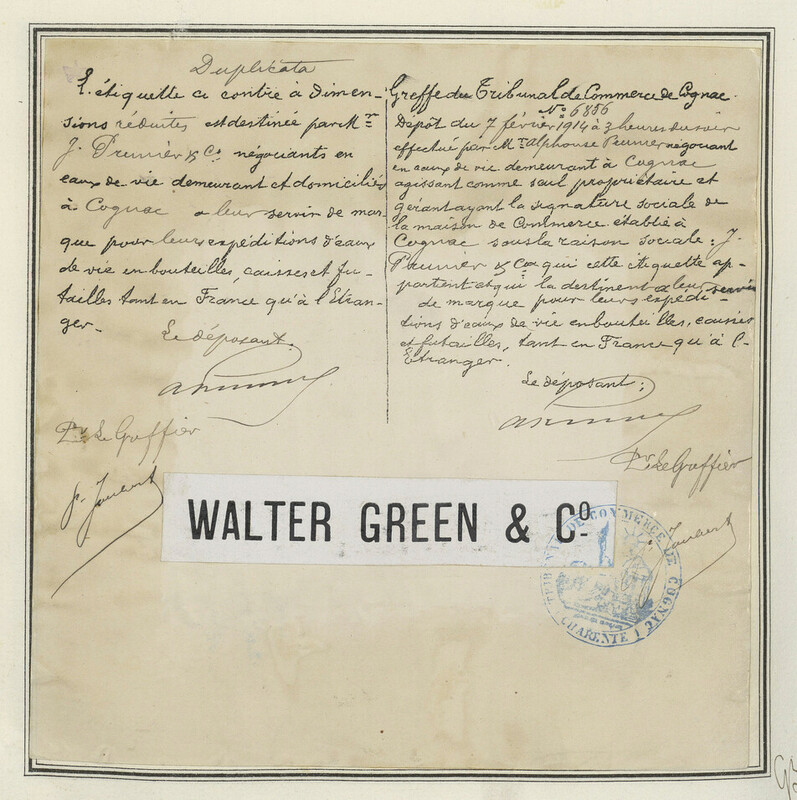 Duplicata
L'étiquette ci contre à dimen-
sions réduites est destinée par Mrs
J. Prunier & Co négociants en
eaux de vie demeurant et domiciliés
à Cognac a leur servir de mar-
que pour leurs expéditions d'eaux
de vie en bouteilles, caisses et fu-
tailles tant en France qu'à l'Etran-
ger.
Le déposant:
Pr. Le Greffier
Greffe du Tribunal de Commerce de Cognac
No 6856
Dépôt du 7 février 1914 à 3 heures du soir
effectué par Mr Alphonse Prunier négociant
en eaux de vie demeurant à Cognac
agissant comme seul propriétaire et
gérant ayant la signature sociale de
la maison de Commerce établie à
Cognac sous la raison sociale: J.
Prunier & Co a qui cette étiquette ap-
partient et qui la destinent a leur servir
de marque pour leurs expédi-
tions d'eaux de vie en bouteilles, caisses
et futailles, tant en France qu'à l'-
Etranger.
Le déposant:
Pr. Le Greffier
WALTER GREEN & Co
TRIBUNAL DE COMMERCE DE COGNAC
CHARENTE